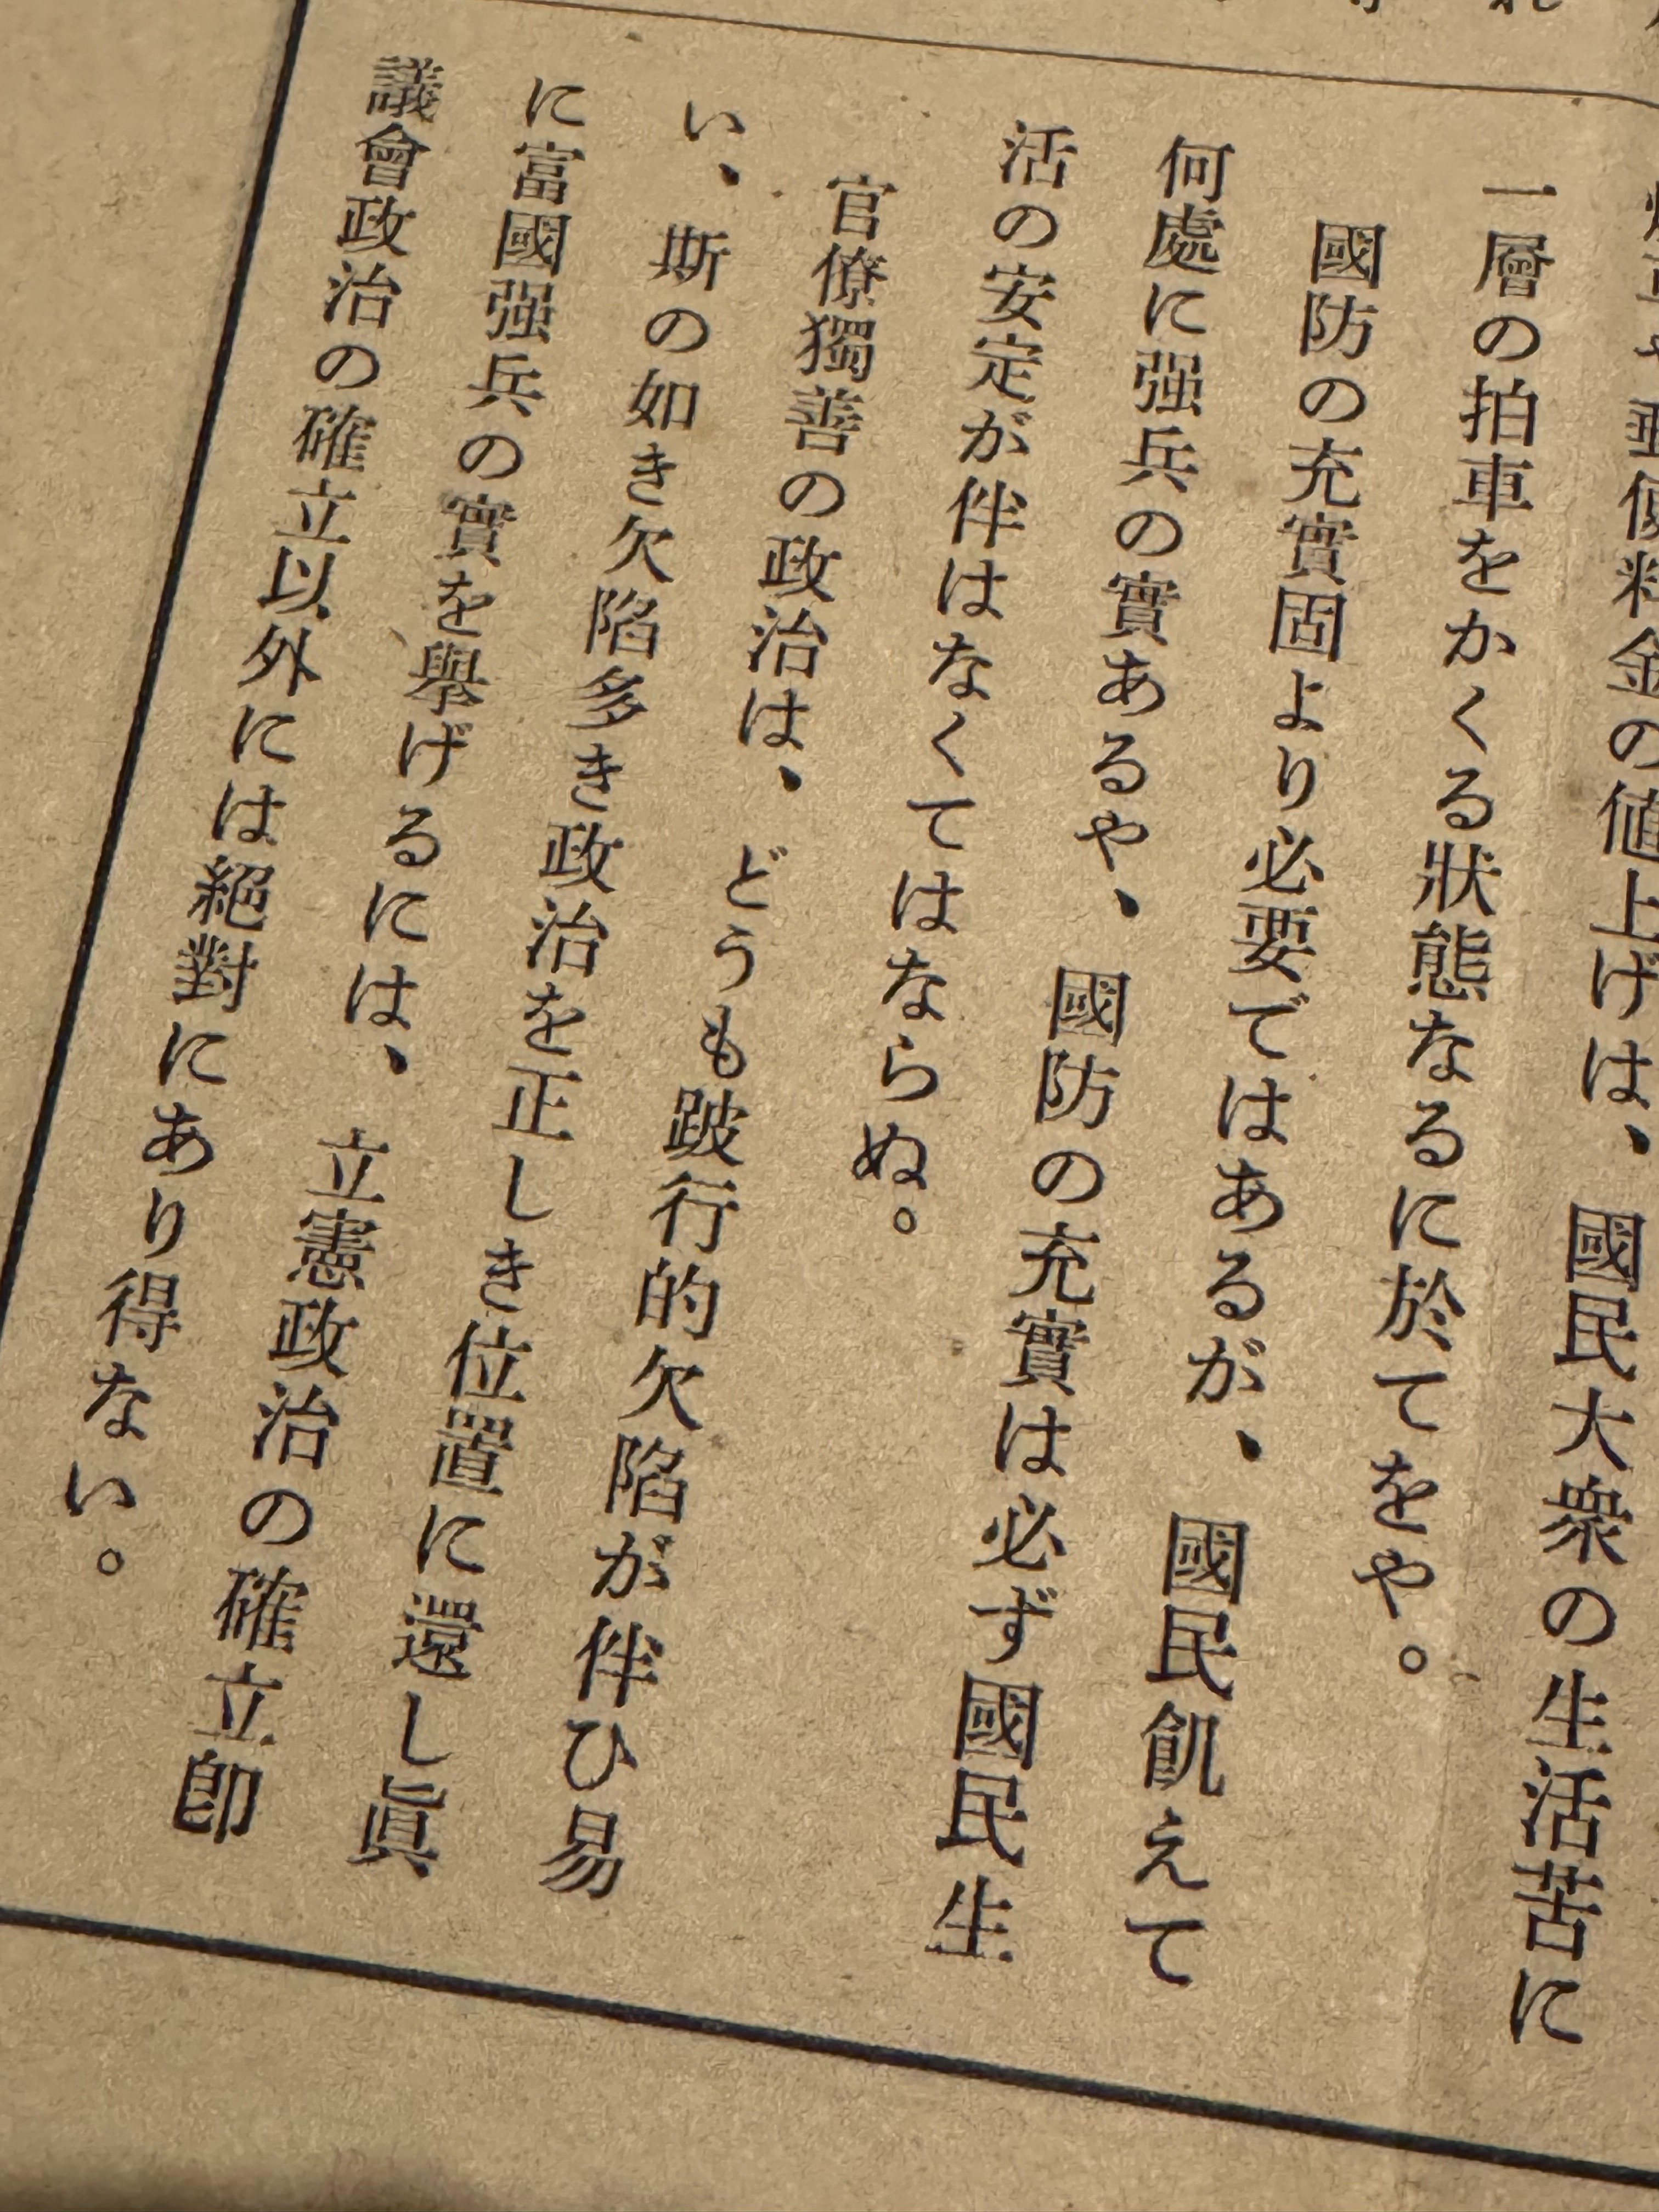 郵便料金の値上げは、國民大衆の生活苦に
一層の拍車をかくる狀態なるに於てをや。
國防の充實固より必要ではあるが、國民飢えて
何處に强兵の實あるや、國防の充實は必ず國民生
活の安定が伴はなくてはならぬ。
官僚獨善の政治は、どうも跛行的欠陷が伴ひ易
い、斯の如き欠陷多き政治を正しき位置に還し眞
に富國强兵の實を擧げるには、立憲政治の確立卽
議會政治の確立以外には絕對にあり得ない。